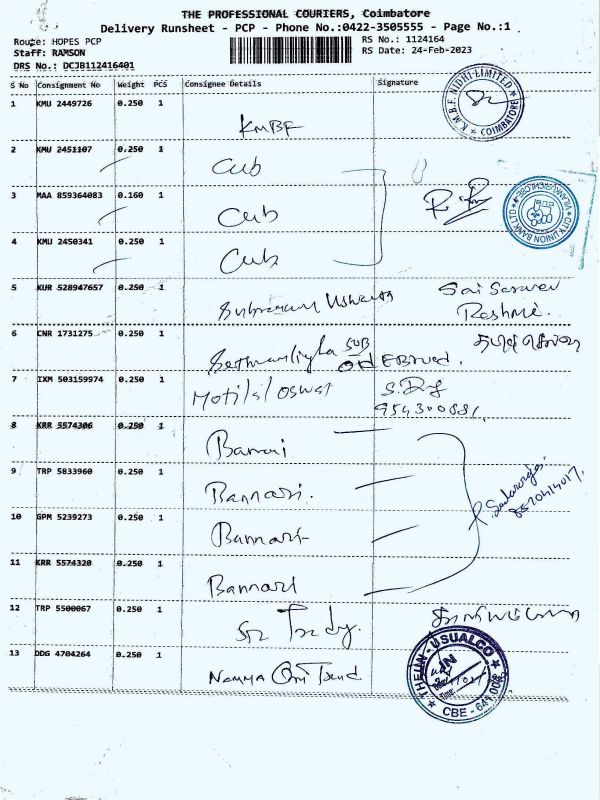 THE PROFESSIONAL COURIERS, Coimbatore
Delivery Runsheet - PCP - Phone No.:0422-3505555 - Page No.:1
Route: HOPES PCP
RS No.: 1124164
Staff: RAMSON
RS Date: 24-Feb-2023
DRS No.: DCJB112416401
S No Consignment No Weight PCS Consignee Details Signature
1 KMU 2449726 0.250 1 KMBF
K.M.B.F. NIDHI LIMITED COIMBATORE
2 KMU 2451107 0.250 1 Cub
3 MAA 859364083 0.160 1 Cub
CITY UNION BANK LTD
4 KMU 2450341 0.250 1 Cub
5 KUR 528947657 0.250 1 Sai Sarwan
Reshme.
6 CNR 1731275 0.250 1 SUB
7 IXM 503159974 0.250 1 Motilal Oswal
8 KRR 5574306 0.250 1 Bannari
9 TRP 5833960 0.250 1 Bannari.
10 GPM 5239273 0.250 1 Bannari
11 KRR 5574320 0.250 1 Bannari
12 TRP 5500067 0.250 1
13 DDG 4704264 0.250 1 Namma Trend
CBE - 641 004